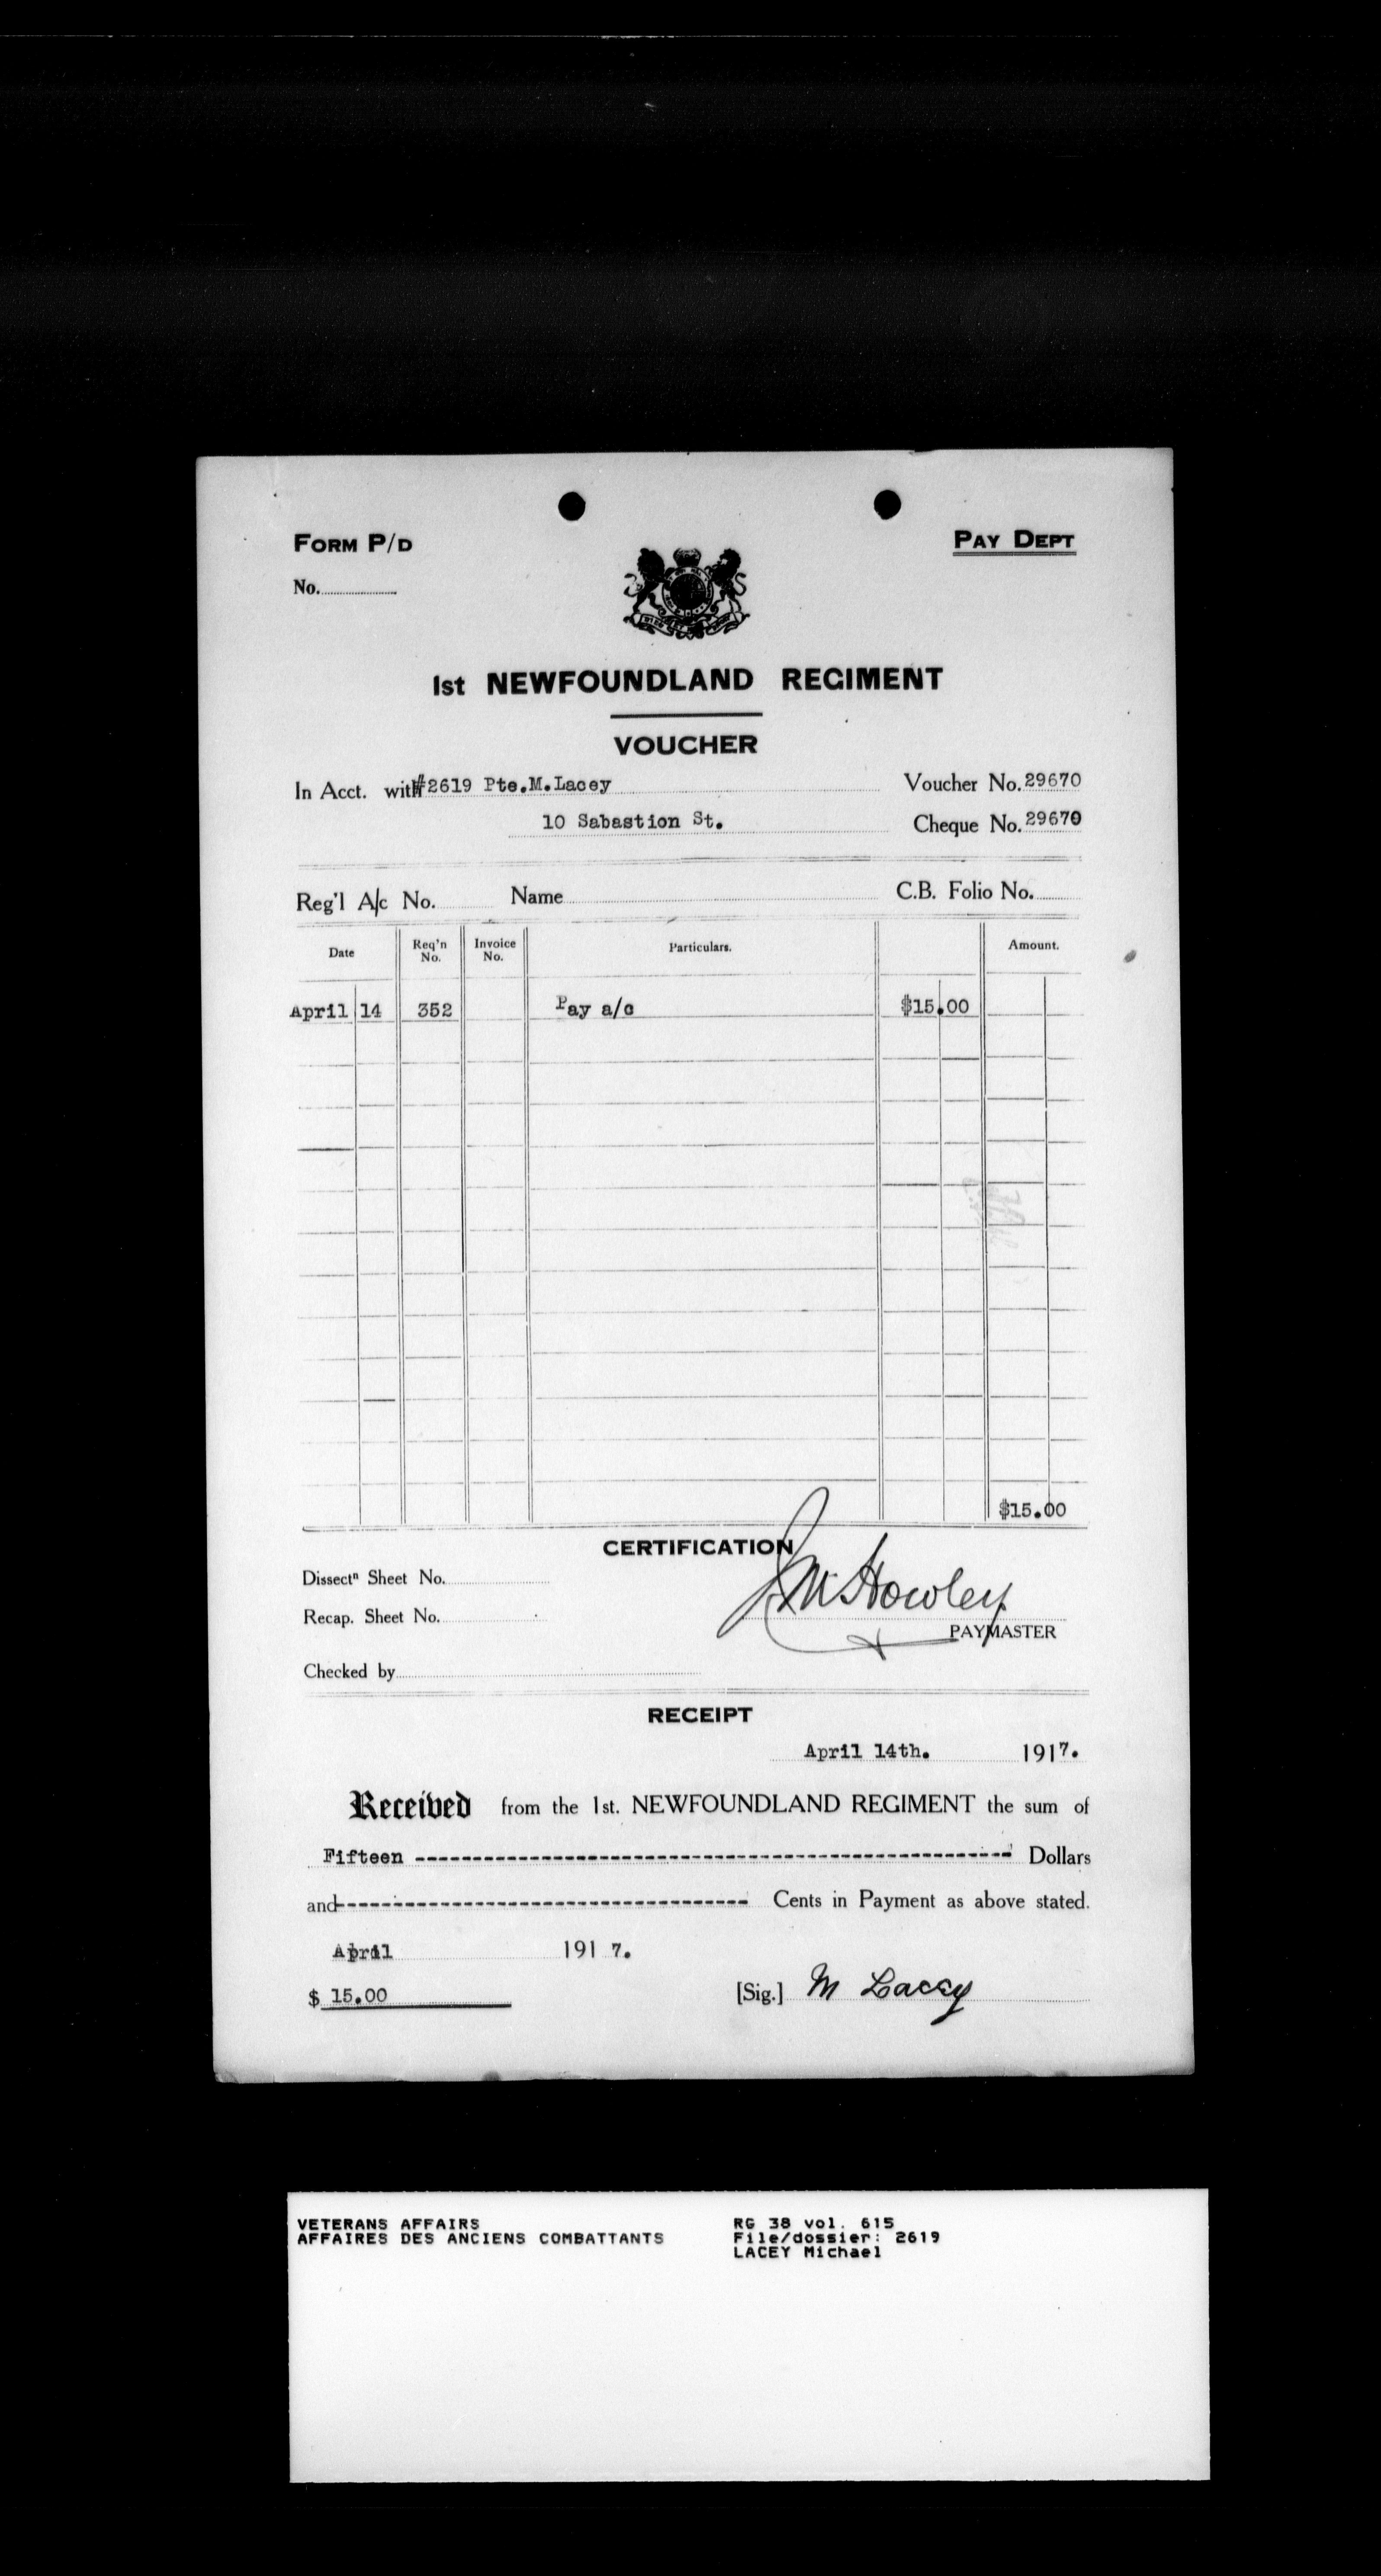 FORM P/D
PAY DEPT
No.
1st NEWFOUNDLAND REGIMENT
VOUCHER
In Acct. with #2619 Pte.M.Lacey Voucher No. 29670
10 Sabastion St. Cheque No. 29670
Reg'l A/c No. Name C.B. Folio No.
Date Req'n No. Invoice No. Particulars. Amount.
April 14 352 Pay a/c $15.00
$15.00
CERTIFICATION
Dissectn Sheet No.
Recap. Sheet No. Howley
PAYMASTER
Checked by
RECEIPT
April 14th. 1917.
Received from the 1st. NEWFOUNDLAND REGIMENT the sum of
Fifteen ---------------------------------------------------- Dollars
and ----------------------------------- Cents in Payment as above stated.
April 191 7.
$ 15.00 [Sig.] M Lacey
VETERANS AFFAIRS RG 38 vol. 615
AFFAIRES DES ANCIENS COMBATTANTS File/dossier: 2619
LACEY Michael